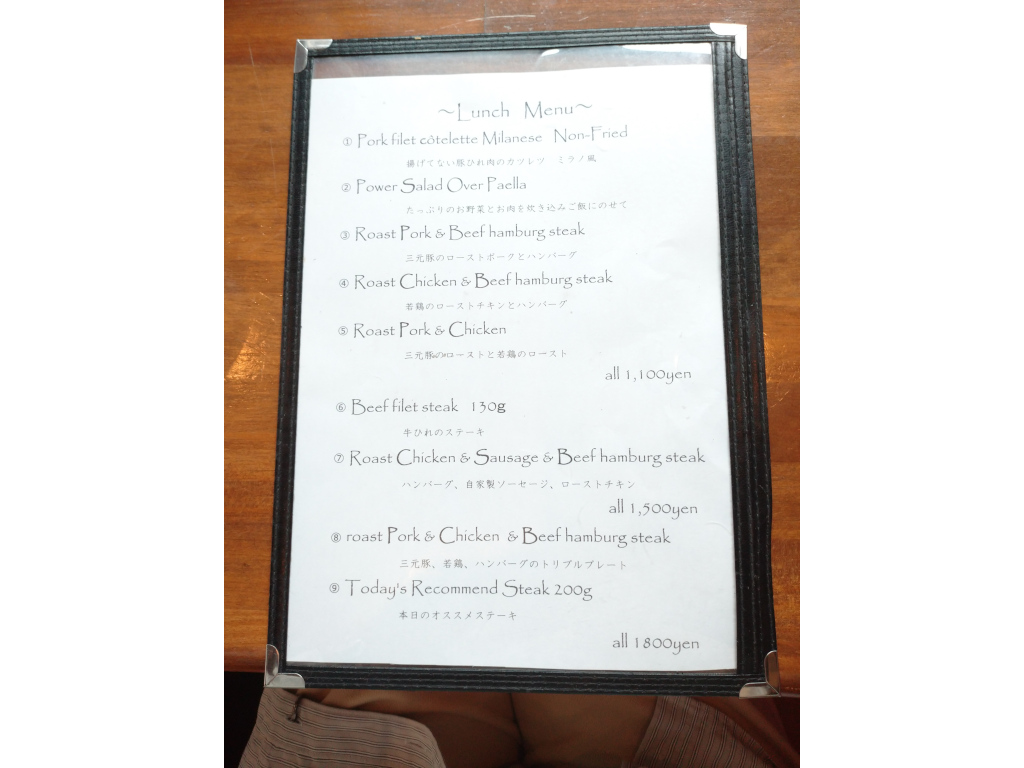 ～Lunch Menu～
① Pork filet côtelette Milanese Non-Fried
揚げてない豚ひれ肉のカツレツ ミラノ風
② Power Salad Over Paella
たっぷりのお野菜とお肉を炊き込みご飯にのせて
③ Roast Pork & Beef hamburg steak
三元豚のローストポークとハンバーグ
④ Roast Chicken & Beef hamburg steak
若鶏のローストチキンとハンバーグ
⑤ Roast Pork & Chicken
三元豚のローストと若鶏のロースト
all 1,100yen
⑥ Beef filet steak 130g
牛ひれのステーキ
⑦ Roast Chicken & Sausage & Beef hamburg steak
ハンバーグ、自家製ソーセージ、ローストチキン
all 1,500yen
⑧ roast Pork & Chicken & Beef hamburg steak
三元豚、若鶏、ハンバーグのトリプルプレート
⑨ Today's Recommend Steak 200g
本日のオススメステーキ
all 1800yen